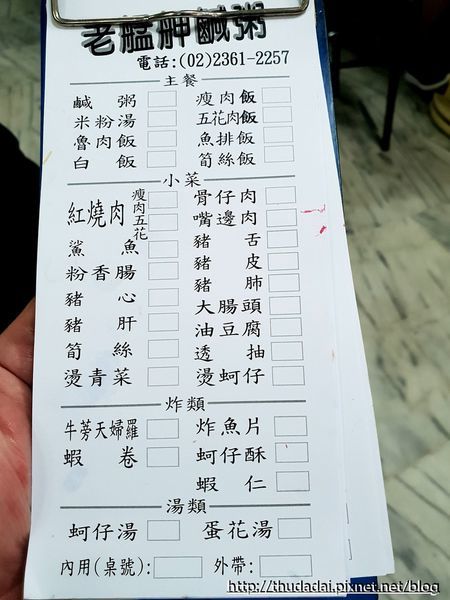 老艋舺鹹粥
電話:(02)2361-2257
主餐
鹹粥 瘦肉飯
米粉湯 五花肉飯
魯肉飯 魚排飯
白飯 筍絲飯
小菜
紅燒肉 瘦肉 五花 骨仔肉
嘴邊肉
鯊魚 豬舌
粉香腸 豬皮
豬心 豬肺
豬肝 大腸頭
筍絲 油豆腐
燙青菜 透抽
燙蚵仔
炸類
牛蒡天婦羅 炸魚片
蝦卷 蚵仔酥
蝦仁
湯類
蚵仔湯 蛋花湯
內用(桌號): 外帶:
http://thudadai.pixnet.net/blog